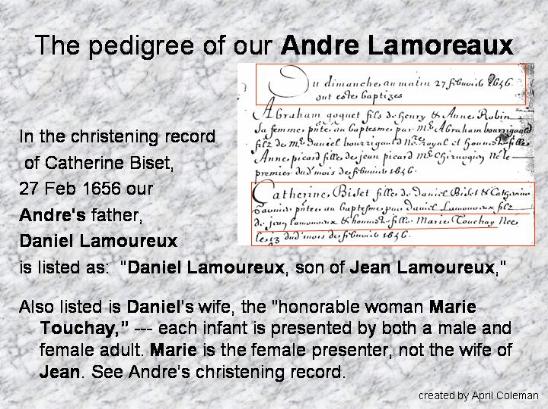 The pedigree of our Andre Lamoreaux
Du dimanche au matin 27 febvrier 1656
ont estes baptizes
Abraham goquet fils de henry & Anne Robin
sa femme pnte au baptesme par Mr Abraham bourrigaud
filz de Mr Daniel bourrigaud Nore Royal et honneste fille
Anne picard fille de jean picard Mr Chirurgien Ne le
premier du d mois de febvrier 1656.
Catherine Biset fille de Daniel Biset & Catherine
pnte au baptesme par Daniel Lamoureux filz
de jean lamoureux & honneste fille Marie Touchay Nee
le 13 du d mois de febvrier 1656.
In the christening record
of Catherine Biset,
27 Feb 1656 our
Andre's father,
Daniel Lamoureux
is listed as: "Daniel Lamoureux, son of Jean Lamoureux,"
Also listed is Daniel's wife, the "honorable woman Marie
Touchay," --- each infant is presented by both a male and
female adult. Marie is the female presenter, not the wife of
Jean. See Andre's christening record.
created by April Coleman